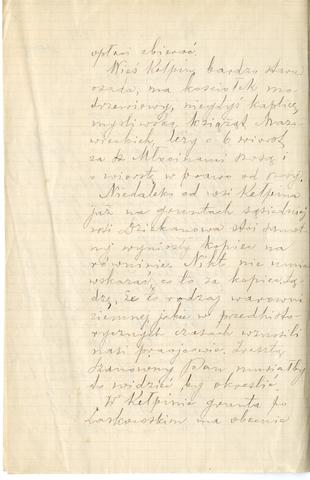 opłaci zbierać.
Wieś Kełpin, bardzo stara
osada, ma kościółek mo-
drzewiowy, niegdyś kaplicę
myśliwską książąt Mazo-
wieckich, leży o 6 wiorst
za Młocinami szosą i
o wiorstę w prawo od szosy.
Niedaleko od wsi Kełpina
już na gruntach sąsiedniej
wsi Dziekanowa stoi samot-
ny wyniosły kopiec na
równinie. Nikt nie umie
wskazać, co to za kopiec, są-
dzę, że to rodzaj warowni
ziemnej jakie w przedhisto-
rycznych czasach wznosili
nasi praojcowie, zresztą
Szanowny Pan musiałby
to widzieć by określić.
W Kełpinie grunta po
ma obecnie